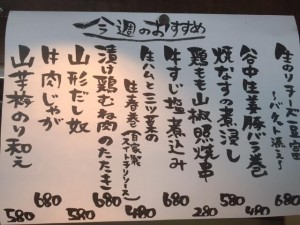 今週のおすすめ
生のりチーズ豆富
～バケット添え～ 680
谷中生姜豚バラ巻 580
焼なすの煮浸し 480
鶏もも山椒照焼串 280
牛すじ塩煮込み 680
生ハムと三ツ葉の
生春巻(自家製スイートチリソース) 480
漬け鶏むね肉のたたき 680
山形だし奴 580
牛肉じゃが 680
山芋千切のり和え 580